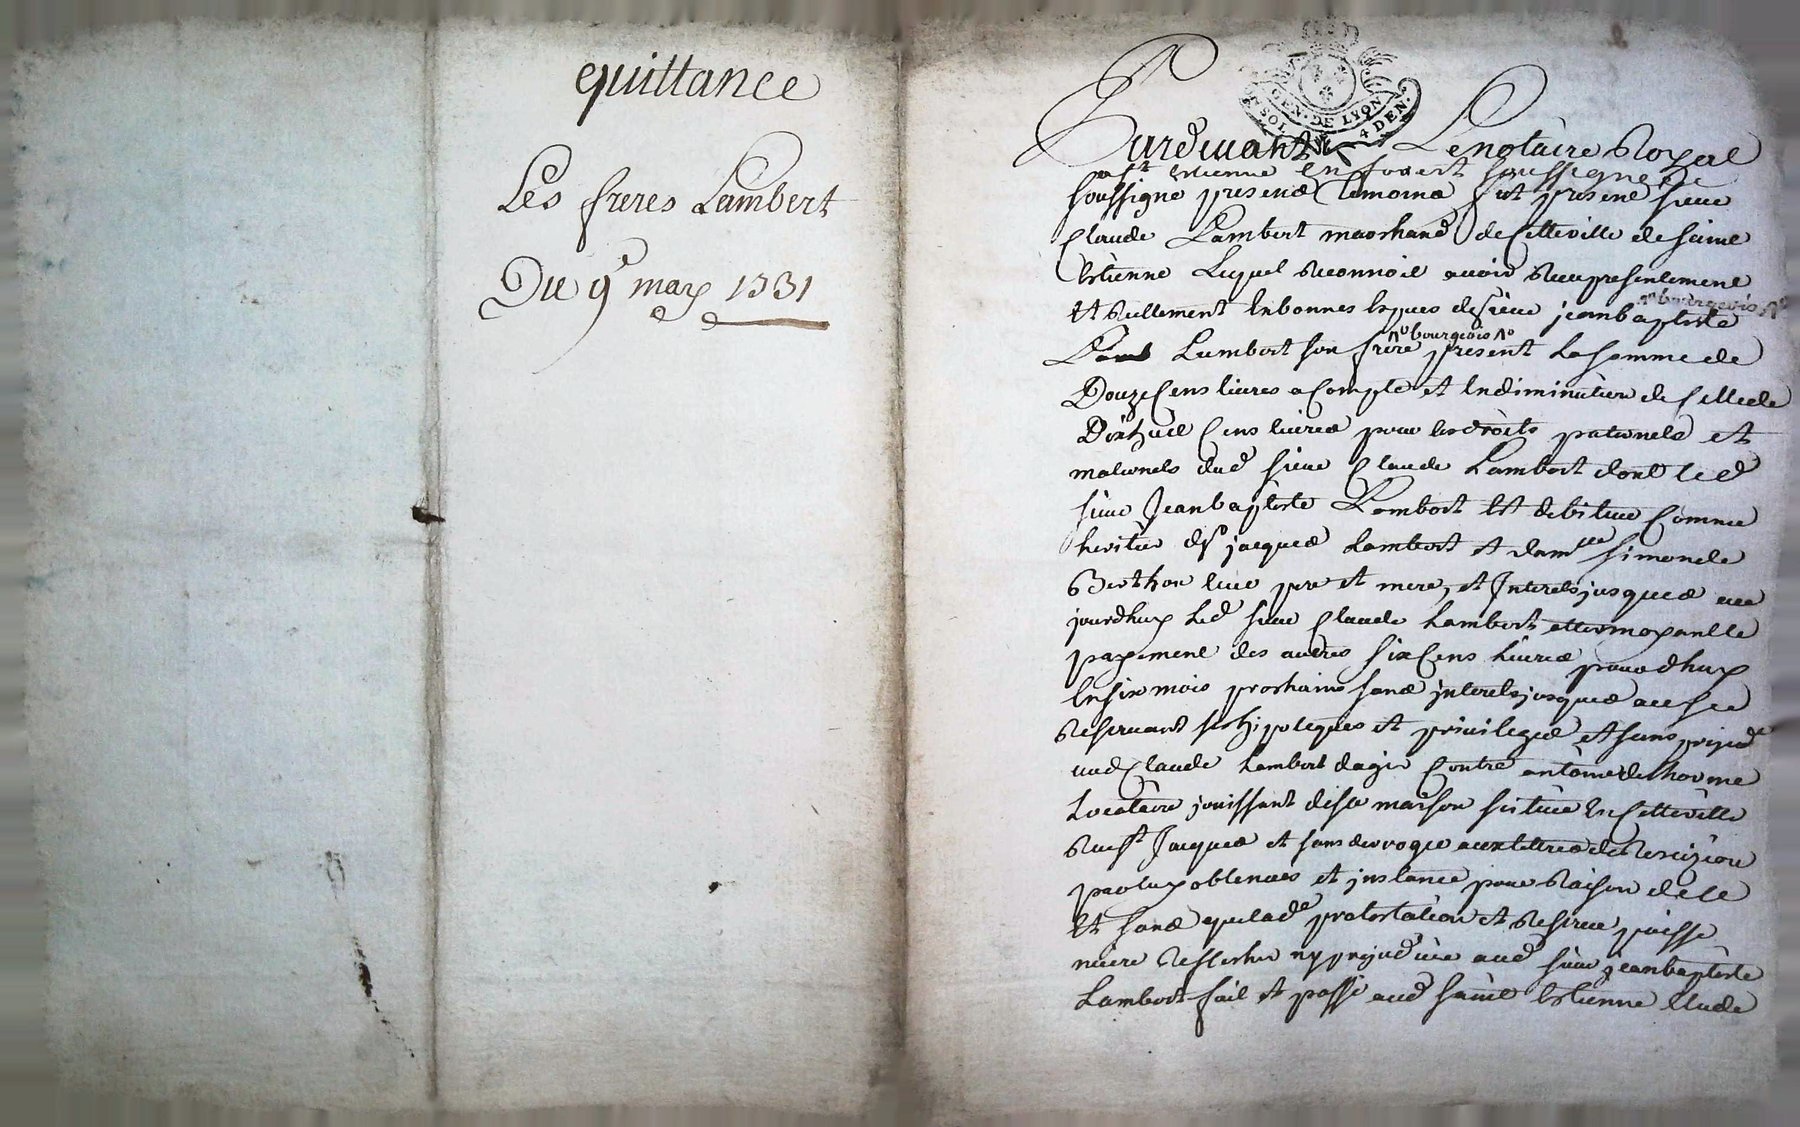 quittance
Les freres Lambert
Du 9e may 1731
GEN. DE LYON
SOL 4 DEN.
Pardevant Le notaire Royal
a st etienne en forest soussigne
soussigne presens temoins fut present sieur
Claude Lambert marchand de cette ville de saint
Etienne Lequel reconnoit avoir receu presentement
et reellement en bonnes especes de sieur jean baptiste
no bourgeois no
Lambert son frere present La somme de
Douze Cens livres a compte et en diminution de Celle de
Dixhuit Cens livres pour les droits paternels et
maternels dud sieur Claude Lambert dont led
sieur Jean baptiste Lambert est debiteur Comme
heritier de sr jacques Lambert et damlle simonde
Berthon leur pere et mere, et Interets jusques au
jourdhuy Led sieur Claude Lambert attermoyant le
payement des autres six Cens livres pour dhuy
En six mois prochains sans interets jusques au se
Reservant ses hipoteques et privileges et sans prejude
aud Claude Lambert dagir Contre antoine delhorme
Locataire jouissant de sa maison scituée en Cette ville
Rue st Jacques et sans deroger aux lettres de Rescizion
par luy obtenues et instance pour Raison de ce
Et sans que lade protestation et Reserve puisse
nuire ny prejudicier aud sieur jean baptiste
Lambert fait et passé aud saint Etienne Etude